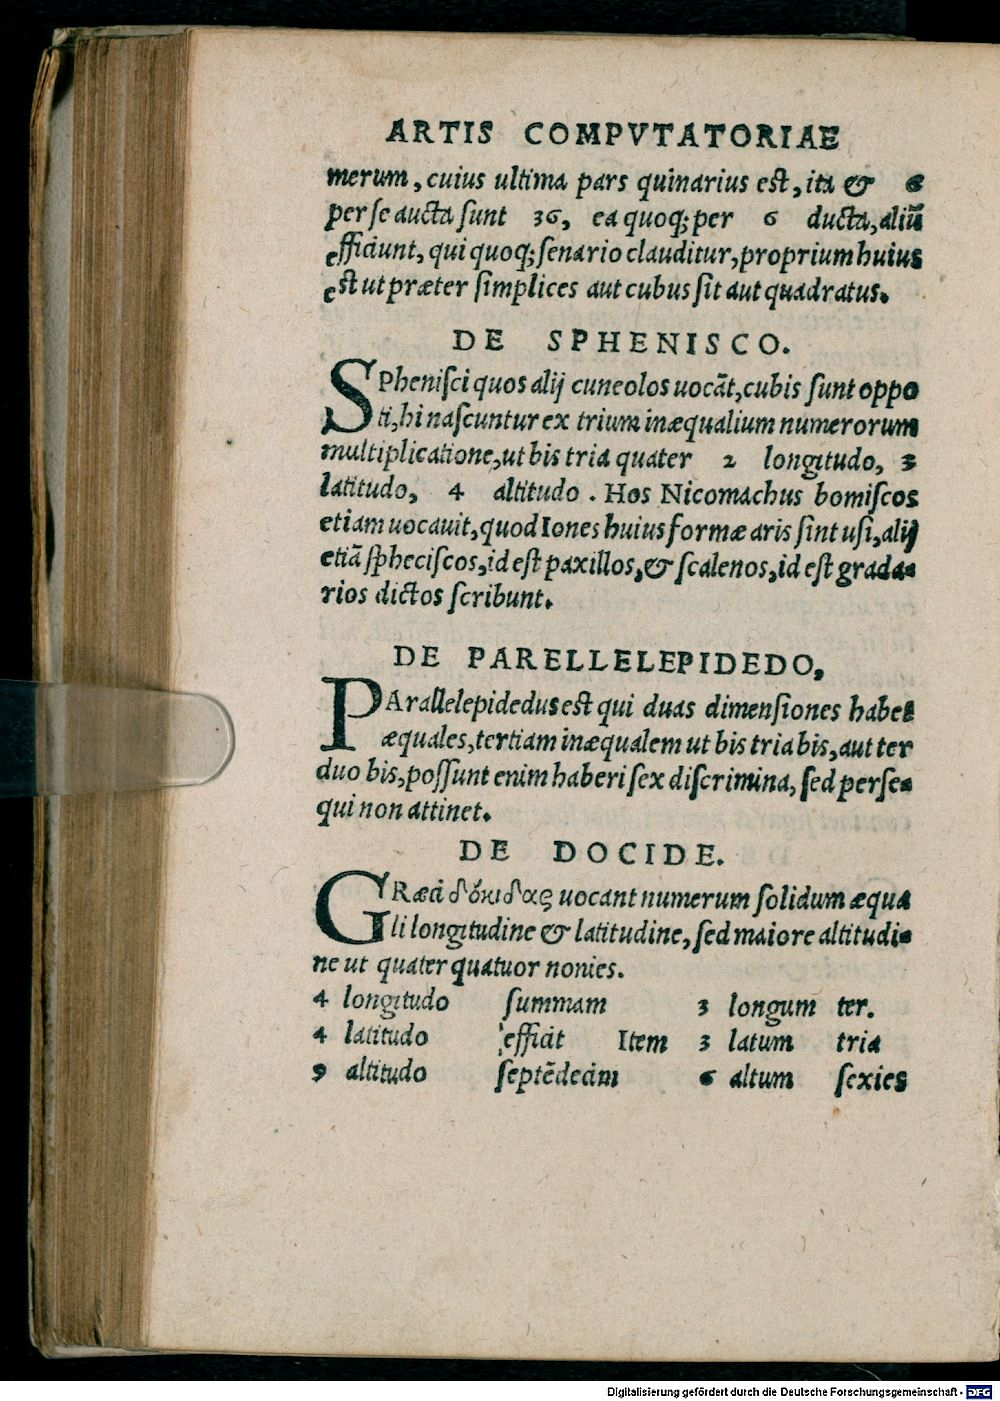 ARTIS COMPVTATORIAE
merum, cuius ultima pars quinarius est, ita & 6
per se aucta sunt 36, ea quoq; per 6 ducta, aliũ
efficiunt, qui quoq; senario clauditur, proprium huius
est ut præter simplices aut cubus sit aut quadratus.
DE SPHENISCO.
SPhenisci quos alij cuneolos uocãt, cubis sunt oppo
ti, hi nascuntur ex trium inæqualium numerorum
multiplicatione, ut bis tria quater 2 longitudo, 3
latitudo, 4 altitudo. Hos Nicomachus bomiscos
etiam uocauit, quod Iones huius formæ aris sint usi, alij
etiã spheciscos, id est paxillos, & scalenos, id est grada-
rios dictos scribunt.
DE PARELLELEPIDEDO,
PArallelepidedus est qui duas dimensiones habet
æquales, tertiam inæqualem ut bis tria bis, aut ter
duo bis, possunt enim haberi sex discrimina, sed perse-
qui non attinet.
DE DOCIDE.
GRæci δόκιδας uocant numerum solidum æqua
li longitudine & latitudine, sed maiore altitudi-
ne ut quater quatuor nonies.
4 longitudo summam 3 longum ter.
4 latitudo efficit Item 3 latum tria
9 altitudo septẽdecim 6 altum sexies
Digitalisierung gefördert durch die Deutsche Forschungsgemeinschaft - DFG